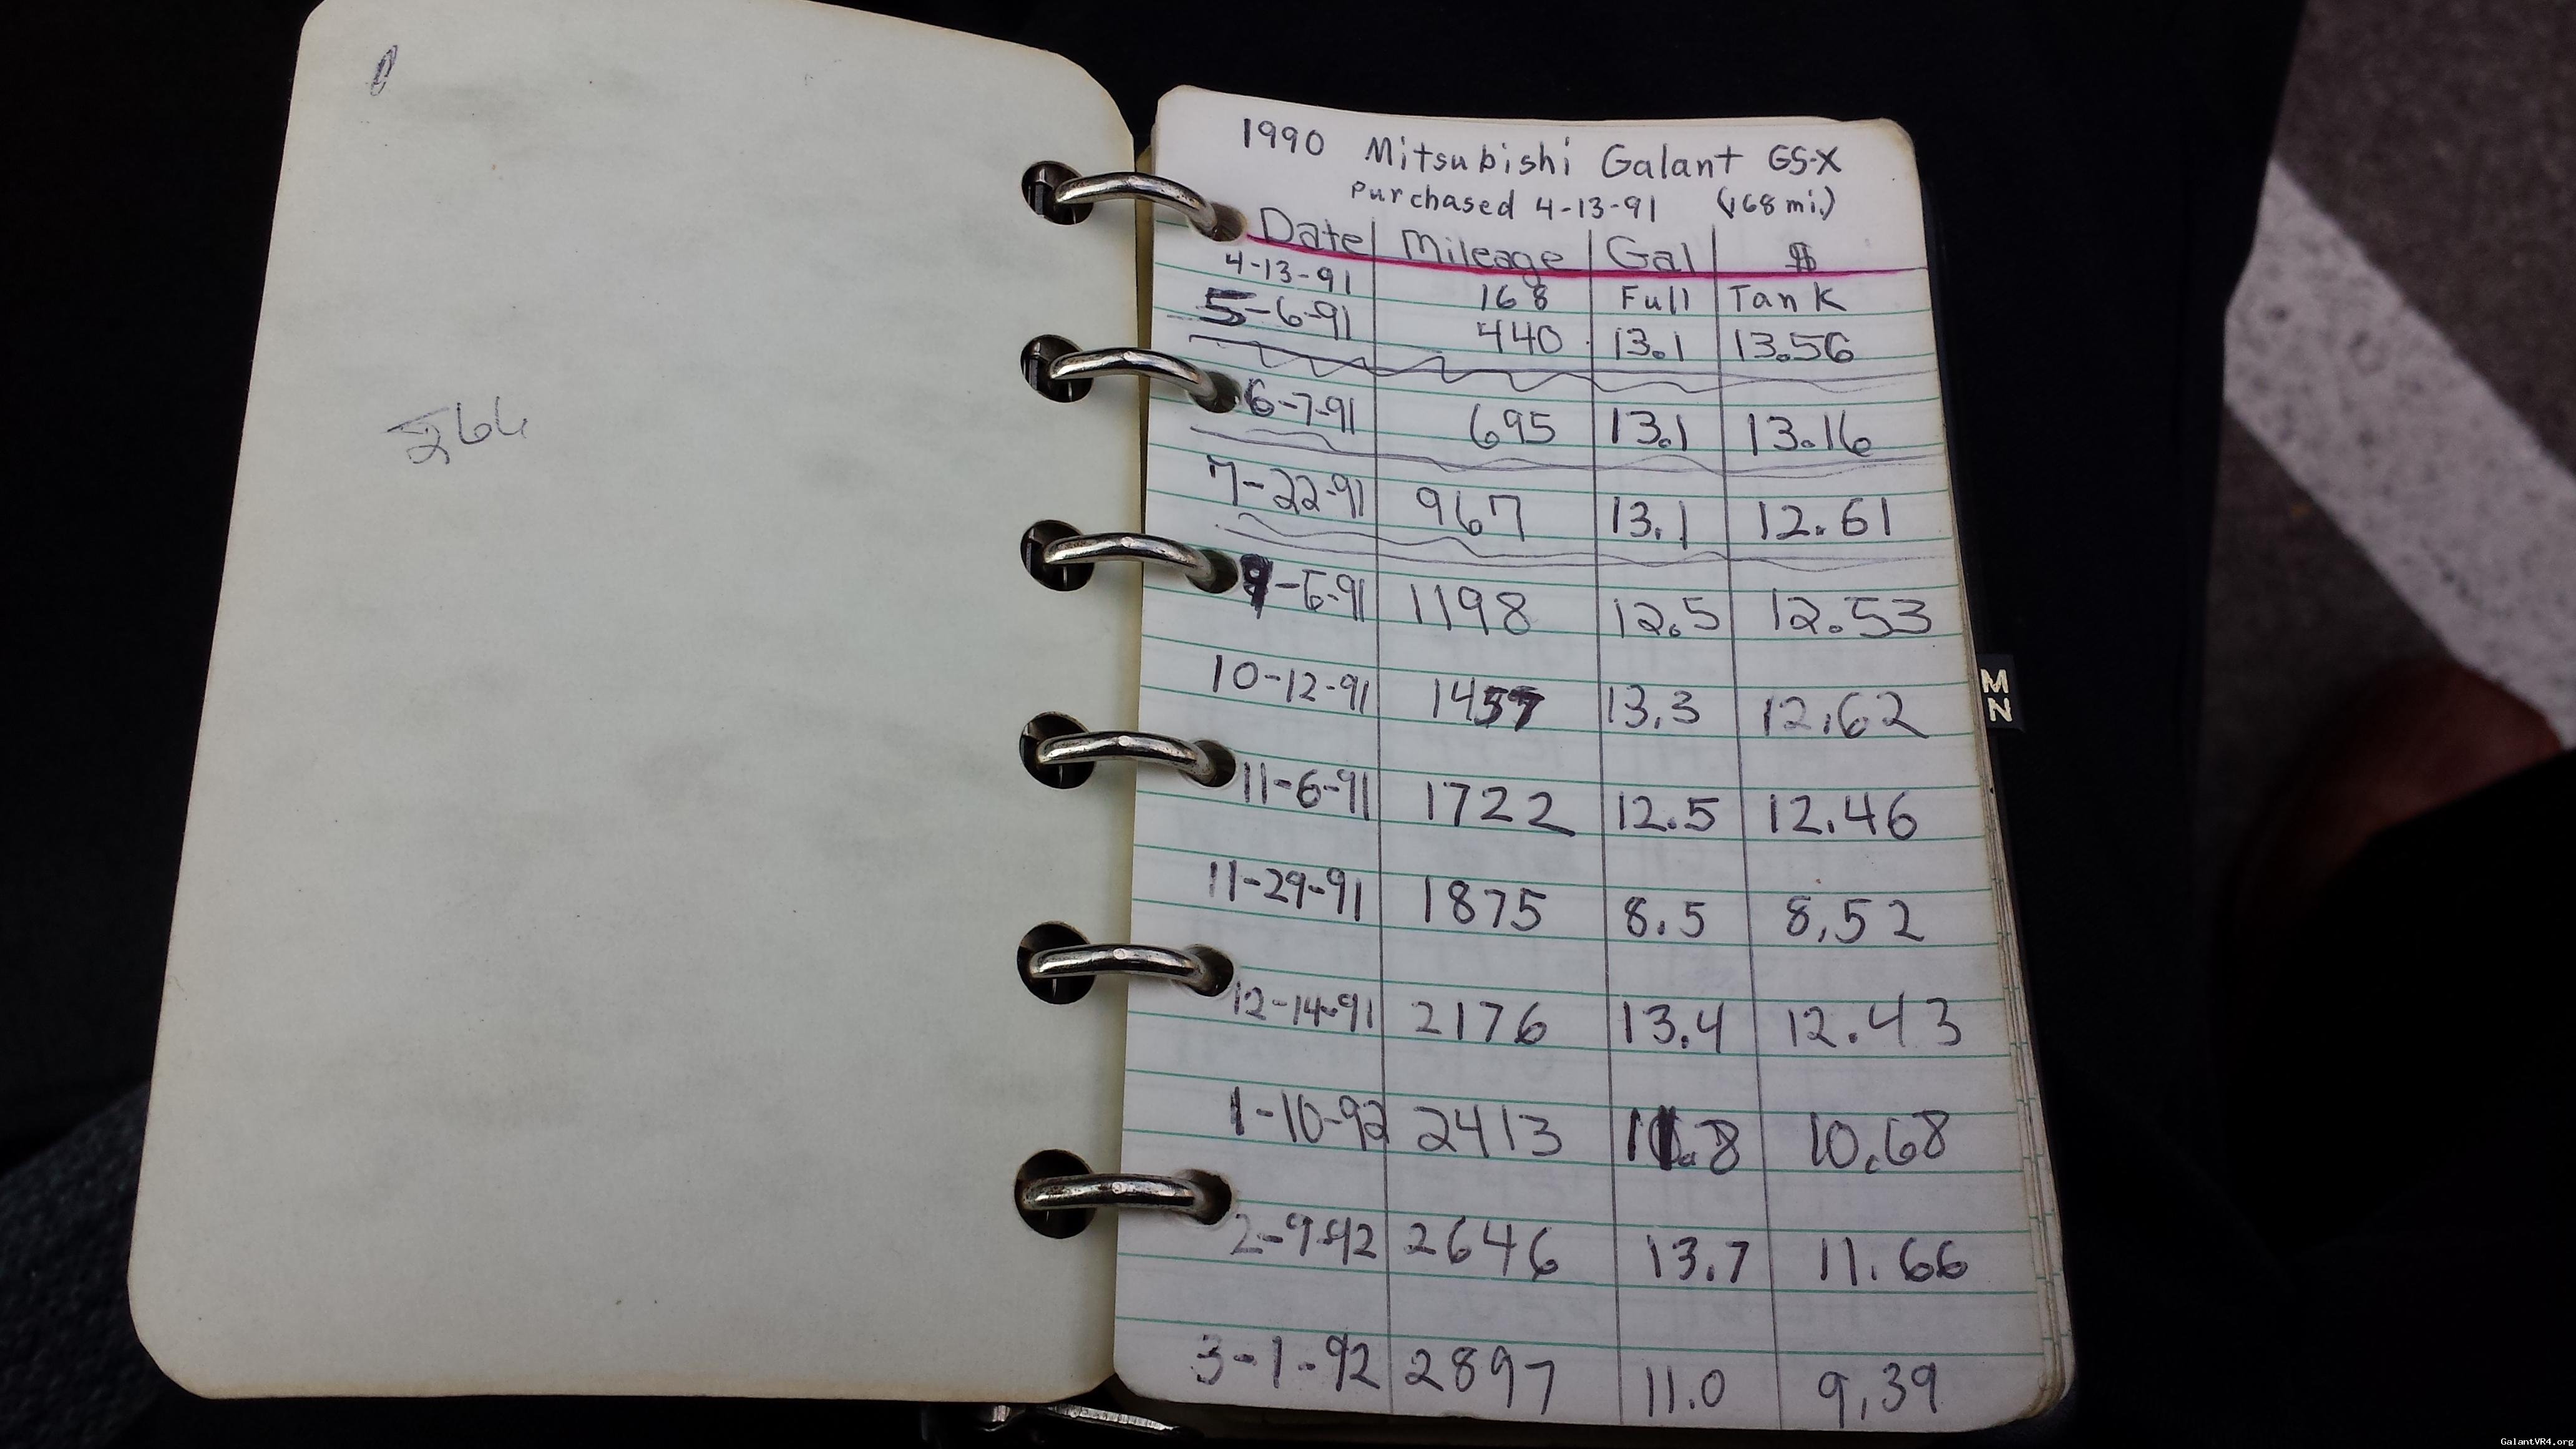 1990 Mitsubishi Galant GS-X
Purchased 4-13-91 (168 mi.)
Date Mileage Gal $
4-13-91 168 Full Tank
5-6-91 440 13.1 13.56
6-7-91 695 13.1 13.16
7-22-91 967 13.1 12.61
9-5-91 1198 12.5 12.53
10-12-91 1457 13.3 12.62
11-6-91 1722 12.5 12.46
11-29-91 1875 8.5 8.52
12-14-91 2176 13.4 12.43
1-10-92 2413 11.8 10.68
2-9-92 2646 13.7 11.66
3-1-92 2897 11.0 9.39
M
N
GalantVR4.org